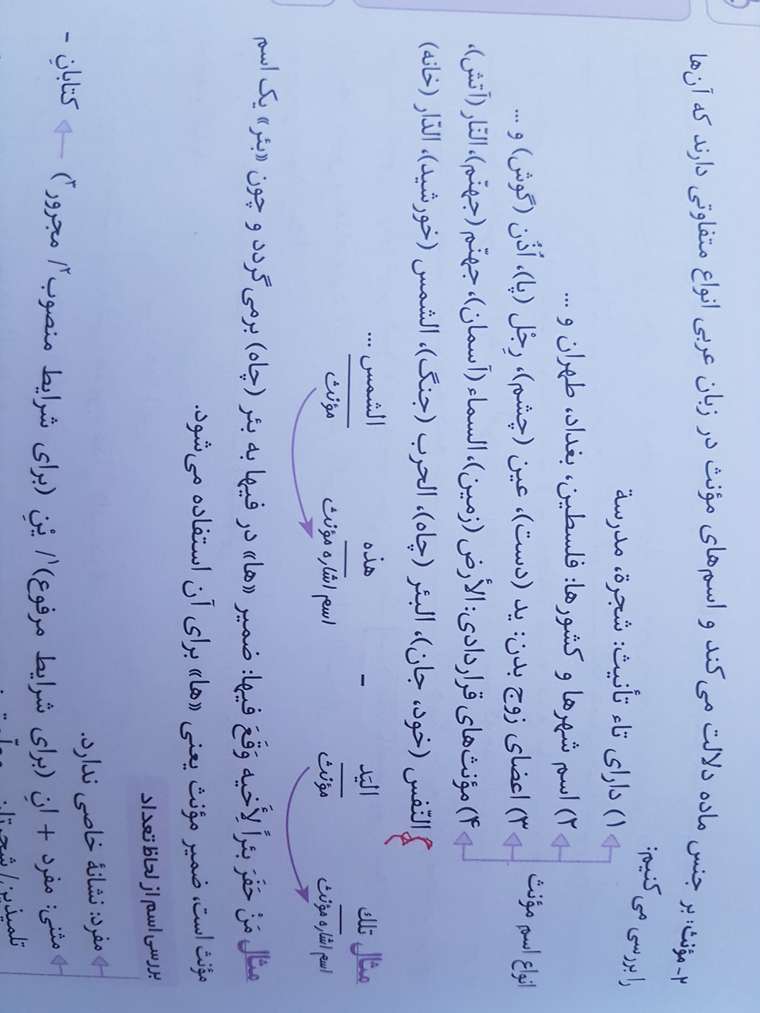 ۲- مؤنث: بر جنس ماده دلالت می‌کند و اسم‌های مؤنث در زبان عربی انواع متفاوتی دارند که آن‌ها
را بررسی می‌کنیم:
انواع اسم مؤنث
۱) دارای تاء تأنیث: شجرة، مدرسة
۲) اسم شهرها و کشورها: فلسطین، بغداد، طهران و ...
۳) اعضای زوج بدن: ید (دست)، عین (چشم)، رِجْل (پا)، أُذُن (گوش) و ...
۴) مؤنث‌های قراردادی: الأرض (زمین)، السماء (آسمان)، جهنّم (جهنّم)، النّار (آتش)،
النّفس (خود، جان)، البئر (چاه)، الحرب (جنگ)، الشمس (خورشید)، الدّار (خانه)
مثال تلك الیَد - هذه الشمس ...
اسم اشاره مؤنث مؤنث اسم اشاره مؤنث مؤنث
مثال مَنْ حَفَرَ بئراً لِأَخیه وَقَعَ فیها: ضمیر «ها» در فیها به بئر (چاه) برمی‌گردد و چون «بئر» یک اسم
مؤنث است، ضمیر مؤنث یعنی «ها» برای آن استفاده می‌شود.
بررسی اسم از لحاظ تعداد
مفرد: نشانهٔ خاصی ندارد.
مثنی: مفرد + انِ (برای شرایط مرفوع)۱/ یْنِ (برای شرایط منصوب۲/ مجرور۳) کتابانِ -
تلمیذینِ/ شجرتانِ